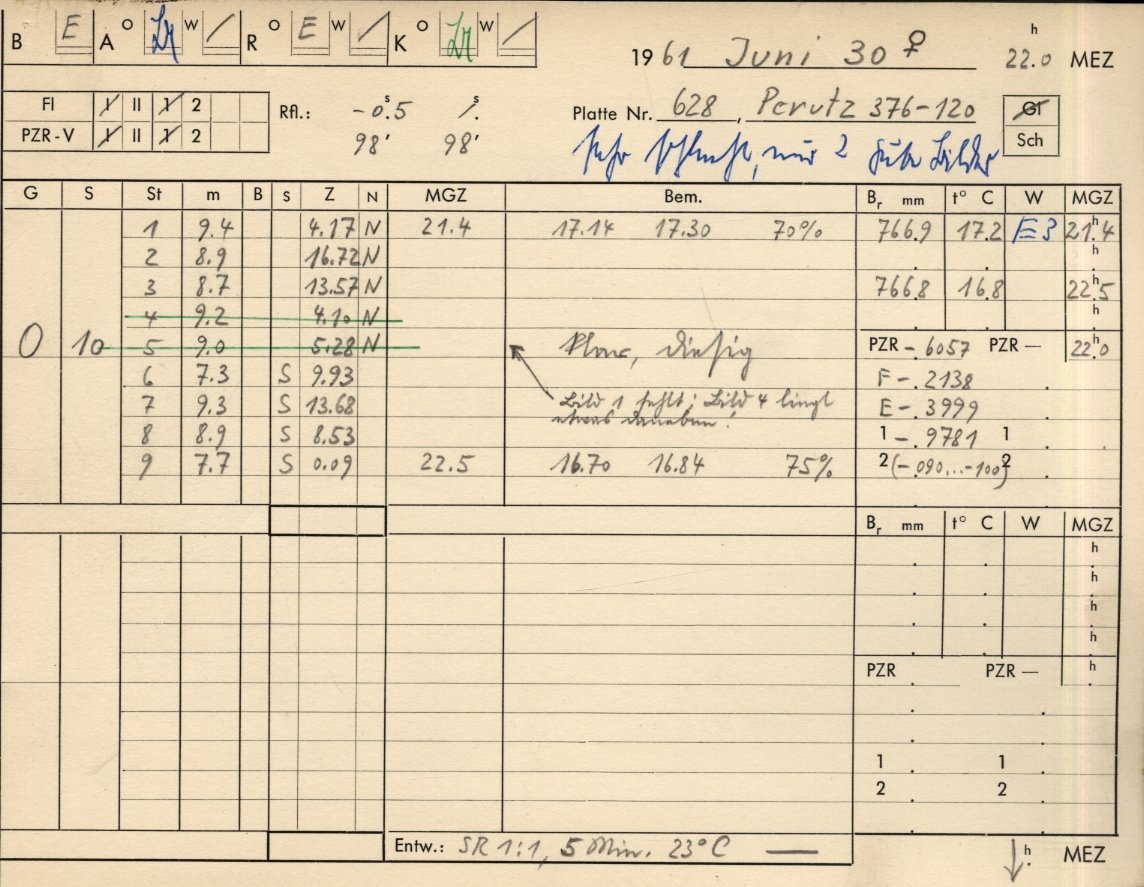 B E A O Lr W / R O E W / K O Lr W /
1961 Juni 30 ♀ 22.0 h MEZ
FI I II 1 2
PZR-V I II 1 2
Rfl.: -0.5 s /. s
98' 98'
Platte Nr. 628, Perutz 376-120
Gl
Sch
Sehr schlecht, nur 2 gute Bilder
G S St m B s Z N MGZ Bem. Br mm t° C W MGZ
1 9.4 4.17 N 21.4 17.14 17.30 70% 766.9 17.2 E3 21.4 h
2 8.9 16.72 N h
3 8.7 13.57 N 766.8 16.8 22.5 h
4 9.2 4.10 N h
0 10 5 9.0 5.28 N klar, diesig PZR - 6057 PZR — 22.0 h
6 7.3 S 9.93 F - .2138
7 9.3 S 13.68 Bild 1 fehlt; Bild 4 liegt E - .3999
etwas daneben!
8 8.9 S 8.53 1 - .9781 1
9 7.7 S 0.09 22.5 16.70 16.84 75% 2 (-.090...-100) 2
Br mm t° C W MGZ
h
h
h
h
PZR PZR — h
1 1
2 2
Entw.: SR 1:1, 5 Min. 23°C —
h MEZ